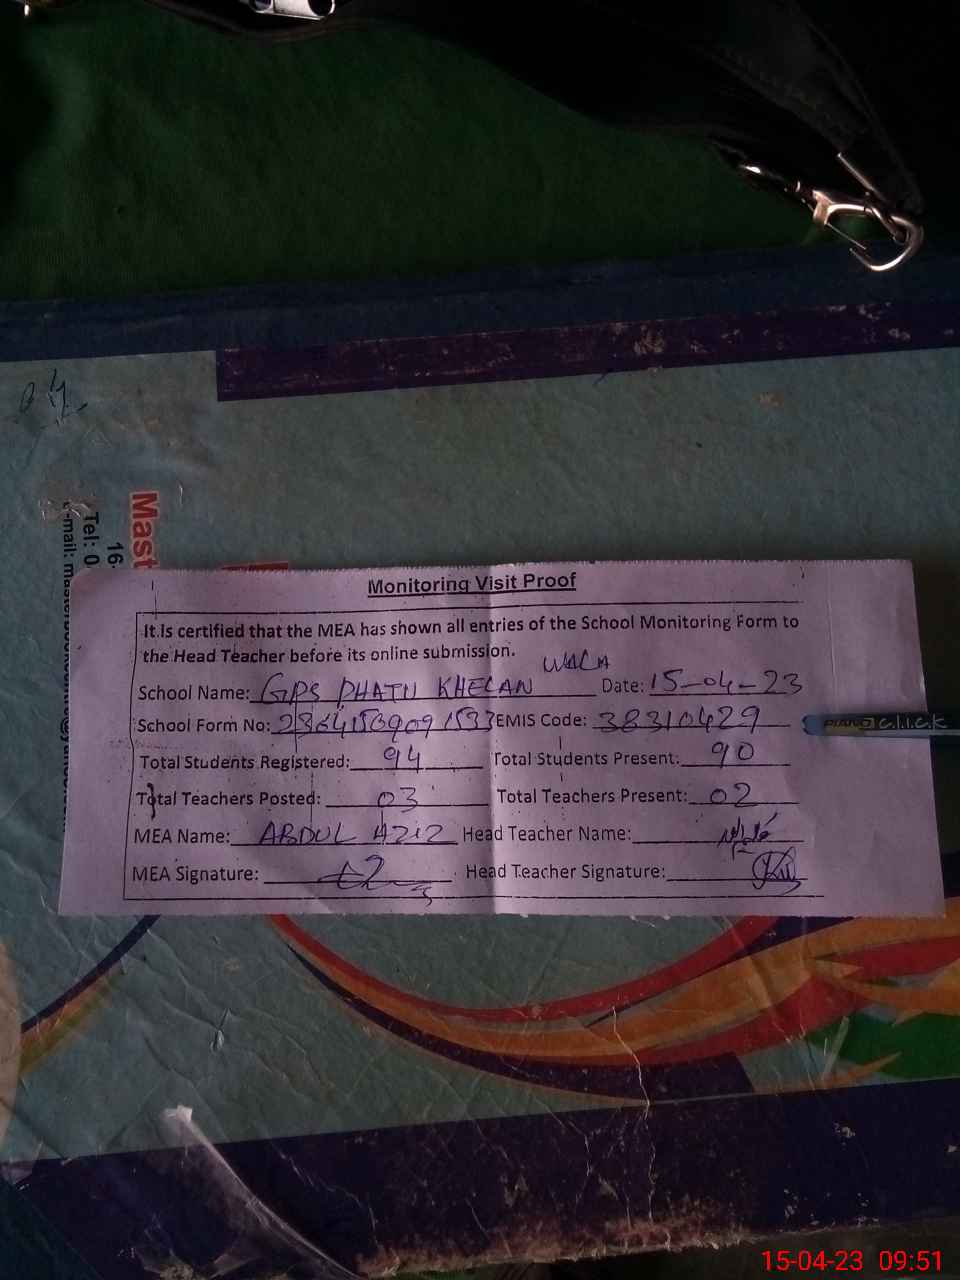 Mast
16-
Tel: 0-
Monitoring Visit Proof
It is certified that the MEA has shown all entries of the School Monitoring Form to
the Head Teacher before its online submission.
WALA
School Name: GPS DHATU KHELAN Date: 15-04-23
School Form No: EMIS Code: 38310429
Total Students Registered: 94 Total Students Present: 90
Total Teachers Posted: 03 Total Teachers Present: 02
MEA Name: ABDUL AZIZ Head Teacher Name:
MEA Signature: Head Teacher Signature:
PIANO click
15-04-23 09:51